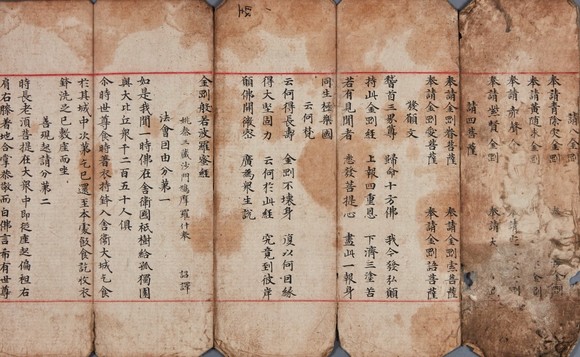 奉請青除災金剛
奉請黃随求金剛
奉請赤聲
奉請紫賢金剛 奉請大
請四菩薩
奉請金剛眷菩薩 奉請金剛索菩薩
奉請金剛愛菩薩 奉請金剛語菩薩
後願文
稽首三界尊 歸命十方佛 我今發弘願
持此金剛經 上報四重恩 下濟三塗苦
若有見聞者 悉發菩提心 盡此一報身
同生極樂國
云何梵
云何得長壽 金剛不壞身 復以何因緣
得大堅固力 云何於此經 究竟到彼岸
願佛開微密 廣為眾生說
金剛般若波羅密經
姚秦三藏沙門鳩摩羅什奉 詔譯
法會因由分第一
如是我聞一時佛在舍衛國祇樹給孤獨園
與大比丘眾千二百五十人俱
尒時世尊食時著衣持鉢入舍衛大城乞食
於其城中次第乞已還至本處飯食訖收衣
鉢洗足已敷座而坐
善現起請分第二
時長老須菩提在大眾中即從座起偏袒右
肩右膝著地合掌恭敬而白佛言希有世尊